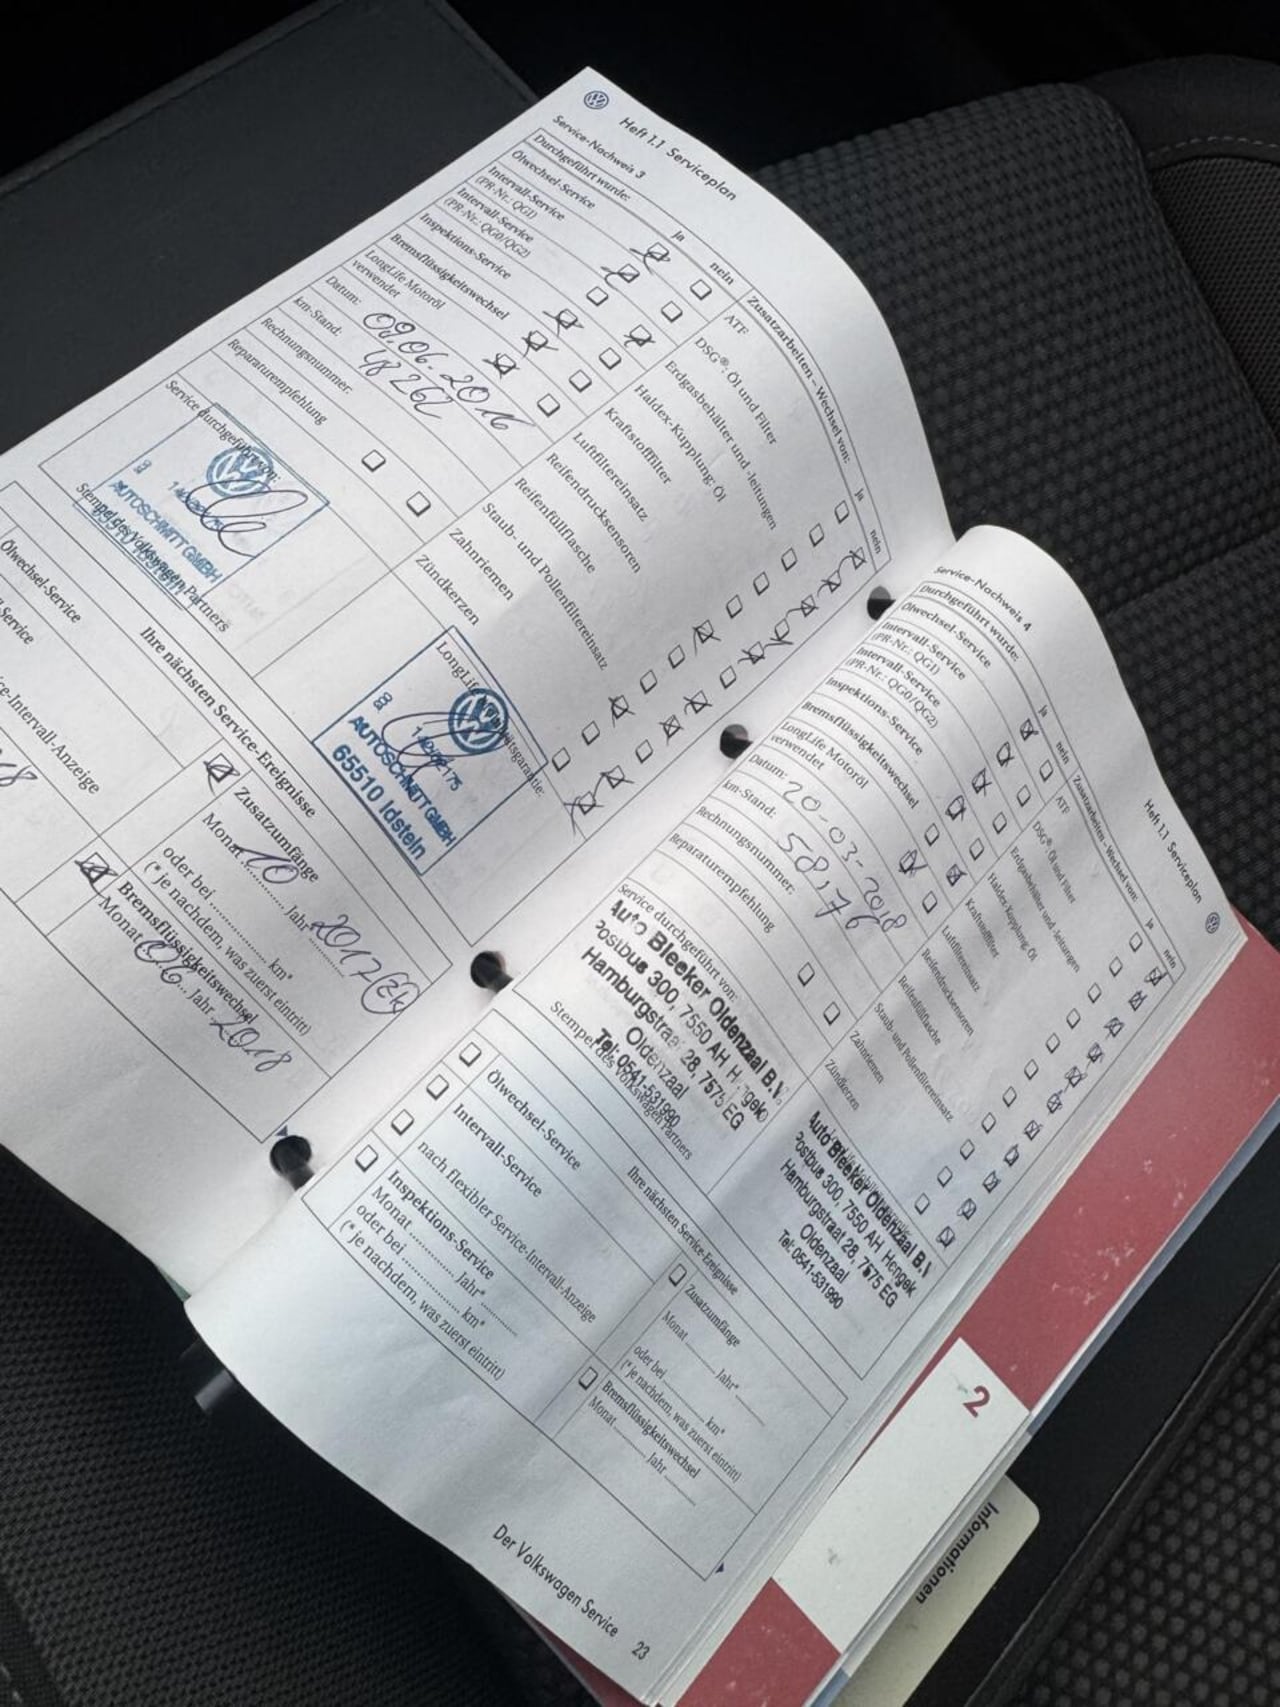 Heft 1.1 Serviceplan
Service-Nachweis 3
Durchgeführt wurde:
ja
nein
Ölwechsel-Service
Intervall-Service
(PR-Nr.: QG1)
Intervall-Service
(PR-Nr.: QG0/QG2)
Inspektions-Service
Bremsflüssigkeitswechsel
LongLife Motoröl
verwendet
Datum: 09.06.2016
km-Stand: 48262
Rechnungsnummer:
Reparaturempfehlung
Zusatzarbeiten – Wechsel von:
ja
nein
ATF
DSG®: Öl und Filter
Erdgasbehälter und -leitungen
Haldex-Kupplung: Öl
Kraftstofffilter
Luftfiltereinsatz
Reifendrucksensoren
Reifenfüllflasche
Staub- und Pollenfiltereinsatz
Zahnriemen
Zündkerzen
Service durchgeführt von:
AUTOSCHMITT GMBH
Stempel des Volkswagen Partners
AUTOSCHMITT GMBH
65510 Idstein
Ihre nächsten Service-Ereignisse
Ölwechsel-Service
Service
ce-Intervall-Anzeige
Zusatzumfänge
Monat 10 Jahr 2017
oder bei km*
(* je nachdem, was zuerst eintritt)
Bremsflüssigkeitswechsel
Monat 06 Jahr 2018
Heft 1.1 Serviceplan
Service-Nachweis 4
Durchgeführt wurde:
ja
nein
Ölwechsel-Service
Intervall-Service
(PR-Nr.: QG1)
Intervall-Service
(PR-Nr.: QG0/QG2)
Inspektions-Service
Bremsflüssigkeitswechsel
LongLife Motoröl
verwendet
Datum: 20-03-2018
km-Stand: 58,176
Rechnungsnummer:
Reparaturempfehlung
Zusatzarbeiten – Wechsel von:
ja
nein
ATF
DSG®: Öl und Filter
Erdgasbehälter und -leitungen
Haldex-Kupplung: Öl
Kraftstofffilter
Luftfiltereinsatz
Reifendrucksensoren
Reifenfüllflasche
Staub- und Pollenfiltereinsatz
Zahnriemen
Zündkerzen
Service durchgeführt von:
Auto Bleeker Oldenzaal B.V.
Postbus 300, 7550 AH
Hamburgstraat 28, 7575 EG
Oldenzaal
Tel: 0541-531990
Stempel des Volkswagen Partners
Auto Bleeker Oldenzaal B.V
Postbus 300, 7550 AH Hengelo
Hamburgstraat 28, 7575 EG
Oldenzaal
Tel: 0541-531990
Ihre nächsten Service-Ereignisse
Ölwechsel-Service
Intervall-Service
nach flexibler Service-Intervall-Anzeige
Inspektions-Service
Monat Jahr*
oder bei km*
(* je nachdem, was zuerst eintritt)
Zusatzumfänge
Monat Jahr*
oder bei km*
(* je nachdem, was zuerst eintritt)
Bremsflüssigkeitswechsel
Monat Jahr
Der Volkswagen Service 23
2
Informationen